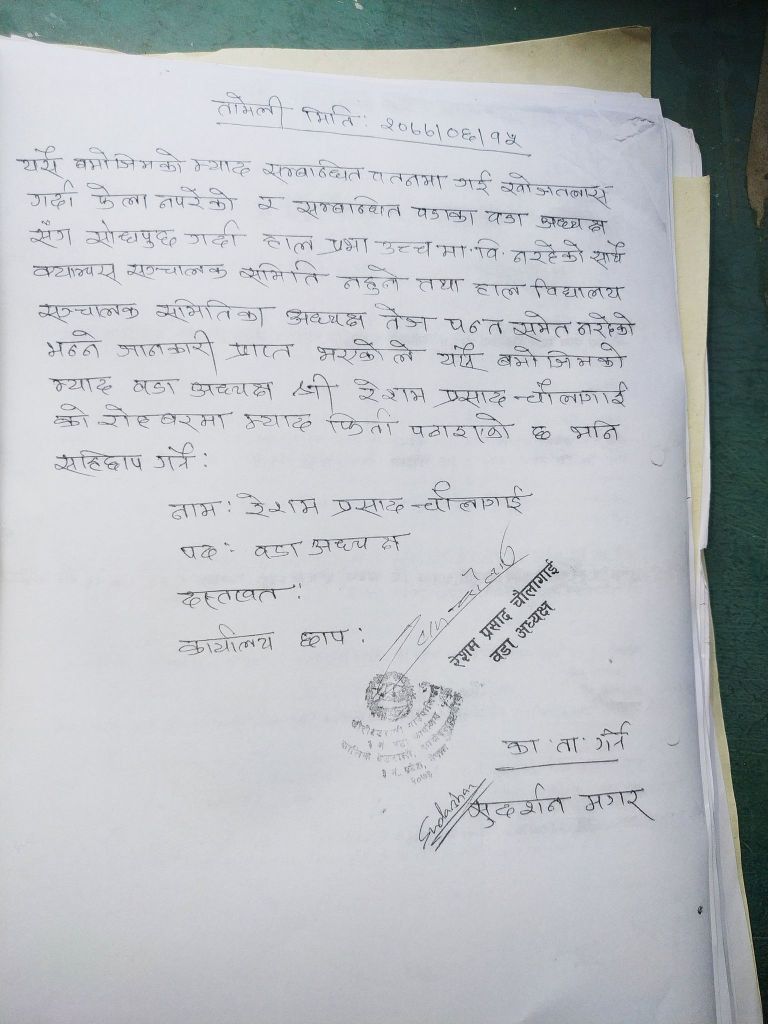 तामेली मिति: २०७७।०६।१५
यसै बमोजिमको म्याद सम्बन्धित वतनमा गई खोजतलास
गर्दा फेला नपरेको र सम्बन्धित वडाका वडा अध्यक्ष
सँग सोधपुछ गर्दा हाल प्रभा उच्च मा. वि. नरहेको साथै
क्याम्पस सञ्चालक समिति नहुने तथा हाल विद्यालय
सञ्चालक समितिका अध्यक्ष तेज पन्त समेत नरहेको
भन्ने जानकारी प्राप्त भएकोले यसै बमोजिमको
म्याद वडा अध्यक्ष श्री रेशम प्रसाद चौलागाई
को रोहबरमा म्याद फिर्ता पठाइएको छ भनि
सहिछाप गर्ने:
नाम: रेशम प्रसाद चौलागाई
पद: वडा अध्यक्ष
दस्तखत:
कार्यालय छाप:
रेशम प्रसाद चौलागाई
वडा अध्यक्ष
का. ता. गर्ने
Sudarshan
सुदर्शन मगर